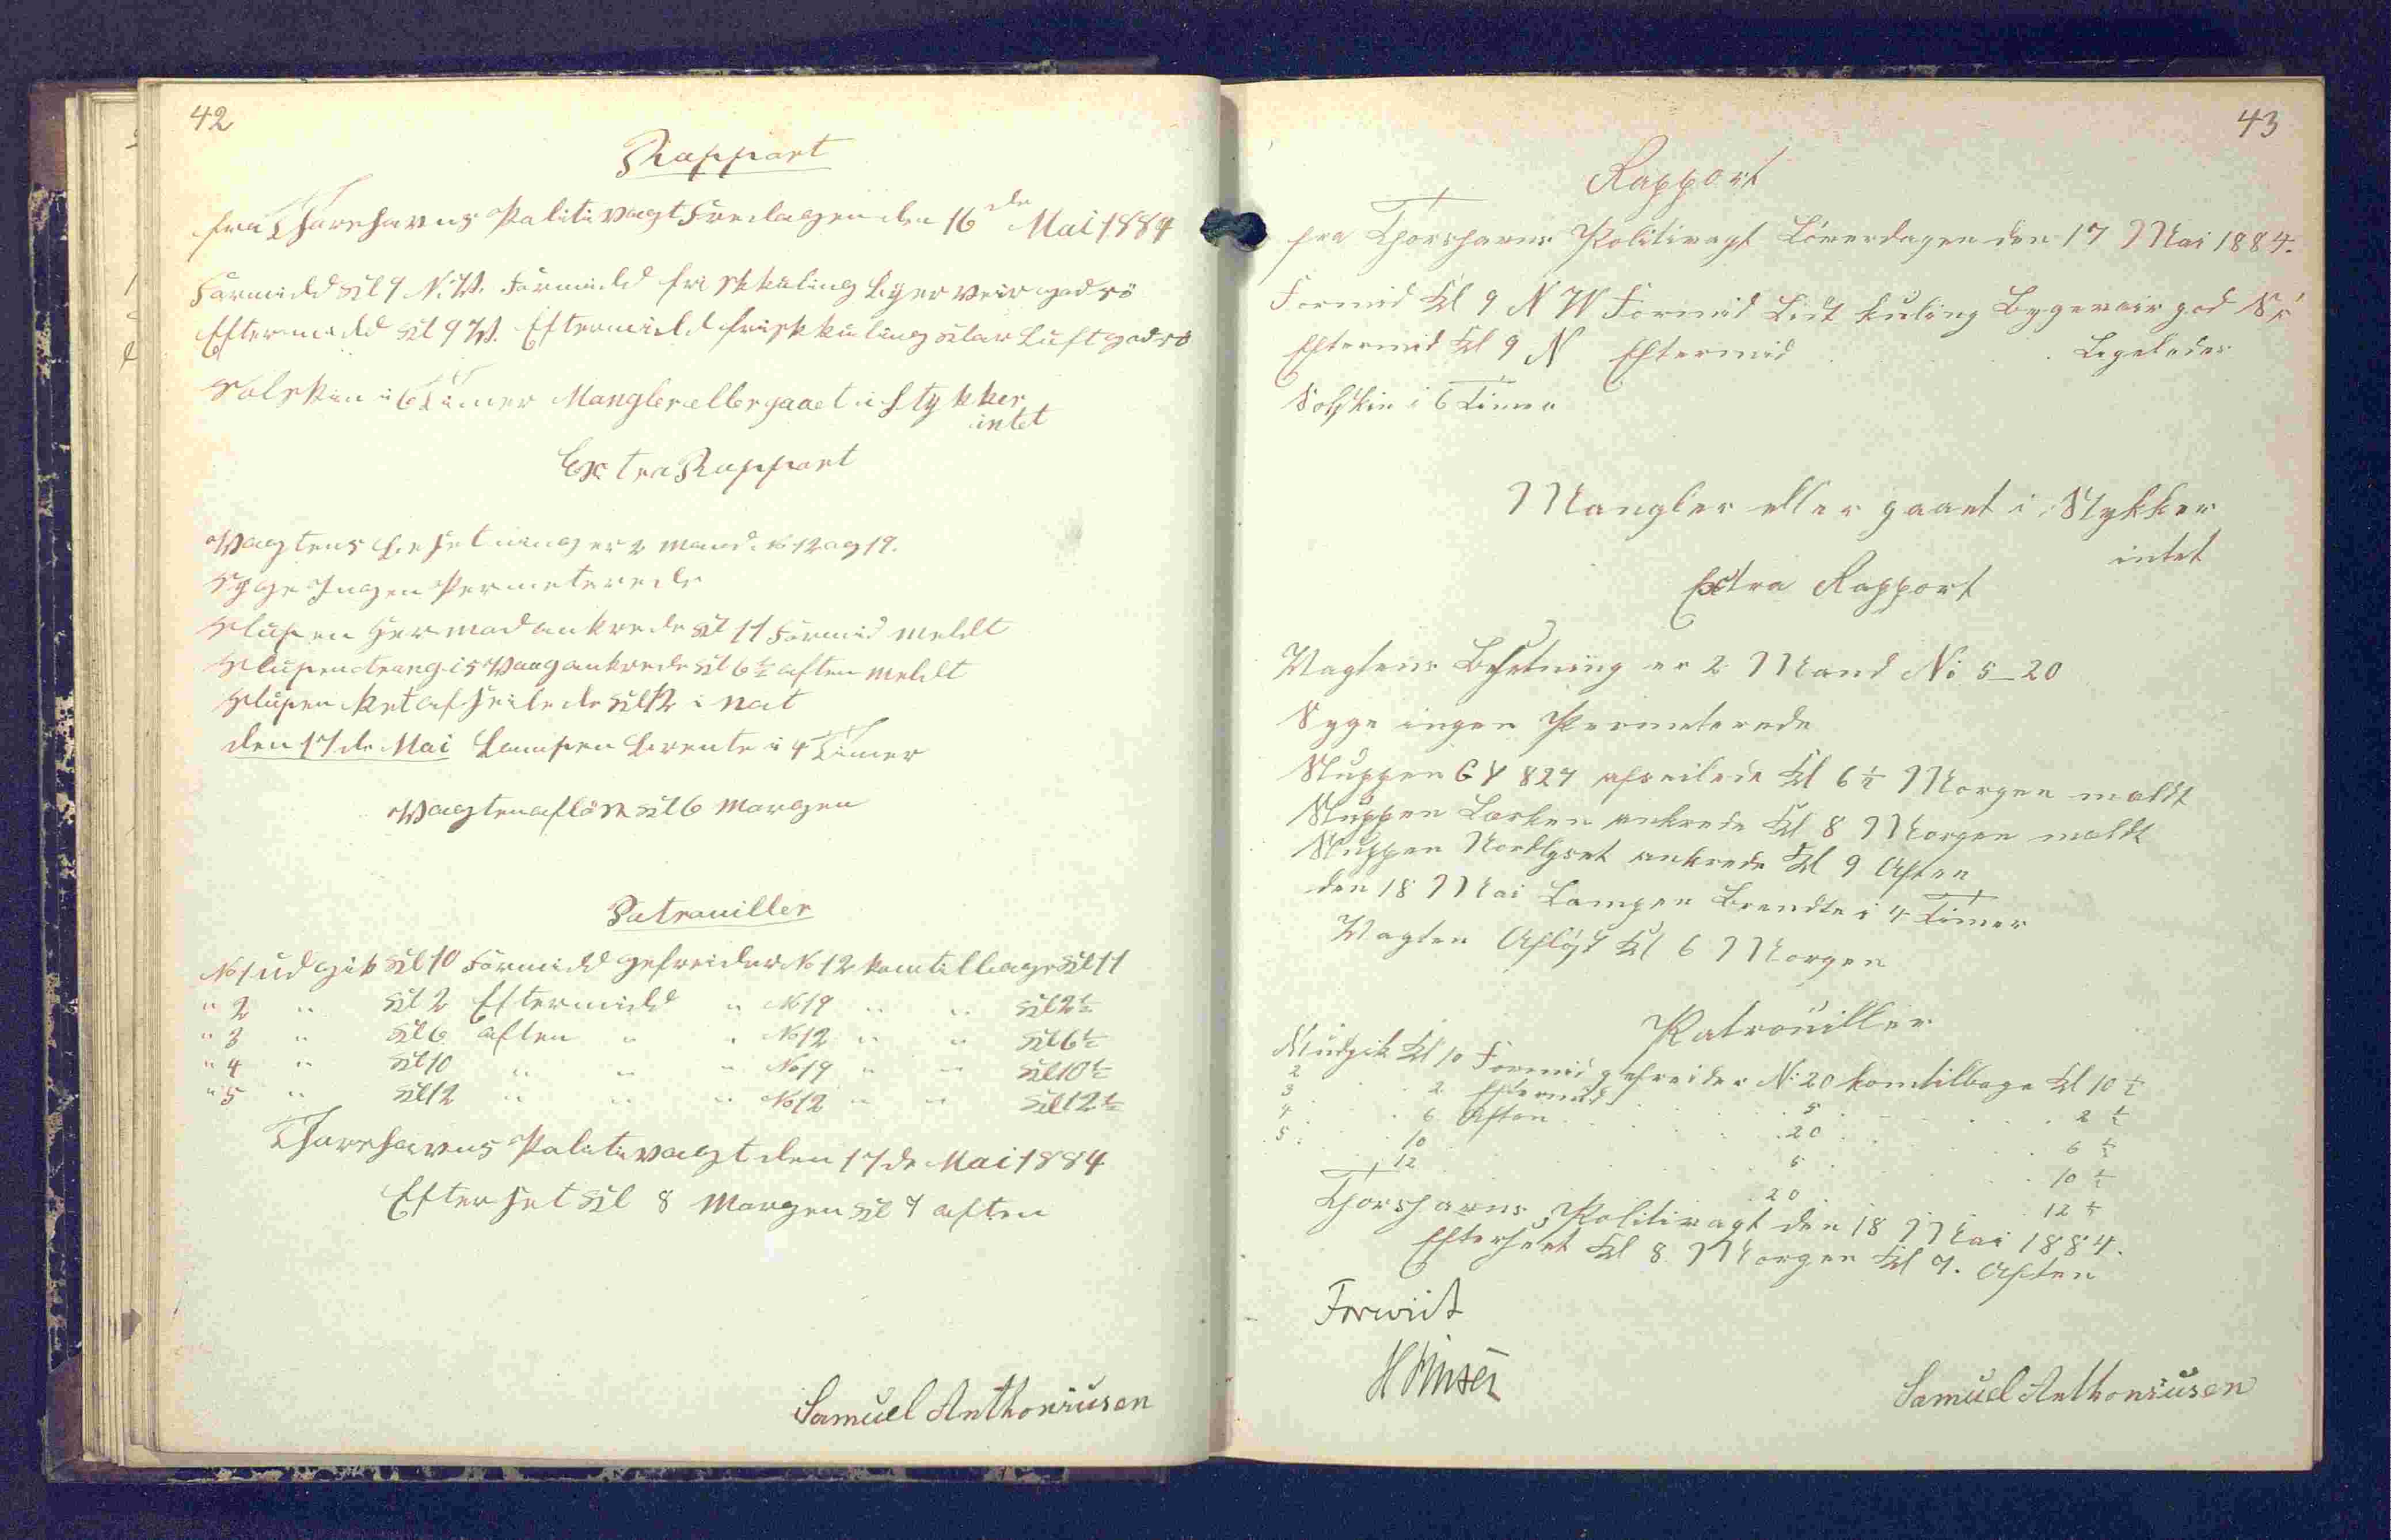 42
Rapport
fra Thorshavns Politivagt Fredagen den 16de Mai 1884
Formidd Kl 9 N.W. Formidd frisk kuling Byer Veir god sö
Eftermidd Kl 9 W. Eftermidd frisk kuling klar Luft god sö
Solskin i 6 Timer Mangler eller gaaet i Stykker
intet
Extra Rapport
Vagtens Besetning er 2 Mand No 12 og 19.
Syge Ingen Permeterede
Slupen Hermod ankrede Kl 11 Formid meldt
Slupen Trangisvaag ankrede Kl 6½ aften meldt
Slupen afseilede Kl 12 i nat
den 17de Mai Lampen brente i 4 Timer
Vagten aflöst Kl 6 Morgen
Patrouiller
No 1 udgik Kl 10 Formidd gefreider No 12 kom tilbage Kl 11
" 2 " Kl 2 Eftermidd " No 19 " " Kl 2½
" 3 " Kl 6 aften " " No 12 " " Kl 6½
" 4 " Kl 10 " " " No 19 " " Kl 10½
" 5 " Kl 12 " " " No 12 " " Kl 12½
Thorshavns Politivagt den 17de Mai 1884
Efterset Kl 8 Morgen Kl 9 aften
Samuel Anthoniusen
43
Rapport
fra Thorshavns Politivagt Löverdagen den 17 Mai 1884.
Formid Kl 9 N W Formid Lidt kuling Bygeveir god Sö
Eftermid Kl 9 N Eftermid . . Ligeledes
Solskin i 6 Timer
Mangler eller gaaet i Stykker
intet
Extra Rapport
Vagtens Besetning er 2 Mand No 5_20
Syge ingen Permeterede
Sluppen GY 827 afseilede Kl 6½ Morgen meldt
Sluppen Lerken ankrede Kl 8 Morgen meldt
Sluppen Nordlyset ankrede Kl 9 Aften
den 18 Mai Lampen Brendte i 4 Timer
Vagten Aflöst Kl 6 Morgen
Patrouiller
N 1 udgik Kl 10 Formid gefreider No 20 kom tilbage Kl 10½
2 . . 2 Eftermid . . 5 . . 2½
3 . . 6 Aften . . 20 . . 6½
4 . . 10 . . 5 . . 10½
5 . . 12 . . 20 . . 12½
Thorshavns Politivagt den 18 Mai 1884.
Efterseet Kl 8 Morgen Kl 9. Aften
Forevist
H Finsen
Samuel Anthoniusen